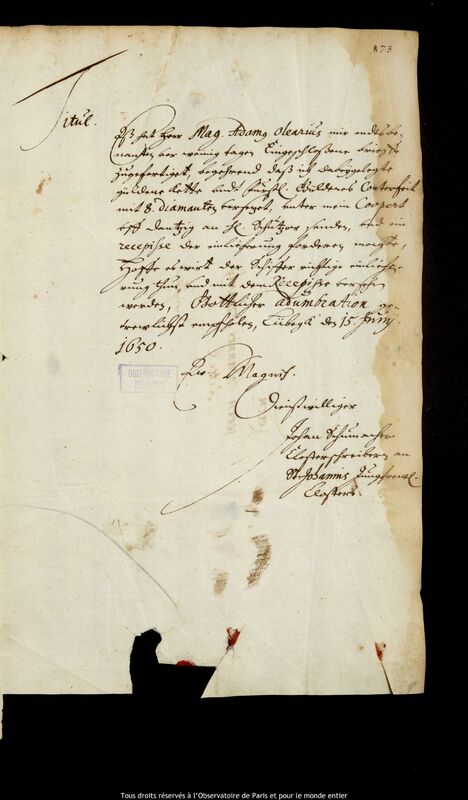 873
Titul.
Eß hat Herr Mag. Adamg Olearius mir endesbe-
nanten vor wenig tagen Eingeschloßene brieffe
Zugefertiget, begehrend daß ich dabeygelegte
güldene Kette undt fürstl. Bildenes Conterfeit
mit 8. diamanten versetzet, unter mein Covert
uff Dantzig an H. senden, und ein
recepisse der einlieferung forderen mogte,
Hoffe es wirt der Schiffer richtige einliefe-
rung thun, und mit dem Recepisse versehen
werden, Gottlicher adumbration ge-
trewlichst empfholen, Lübegk den 15. Junij.
1650.
OBSERVATOIRE
DE PARIS
Magnif.
Dienstwilliger
Johan Schumacher
Closterschreiber an
St Johannis Jungfrewl.
Closters
Tous droits réservés à l'Observatoire de Paris et pour le monde entier